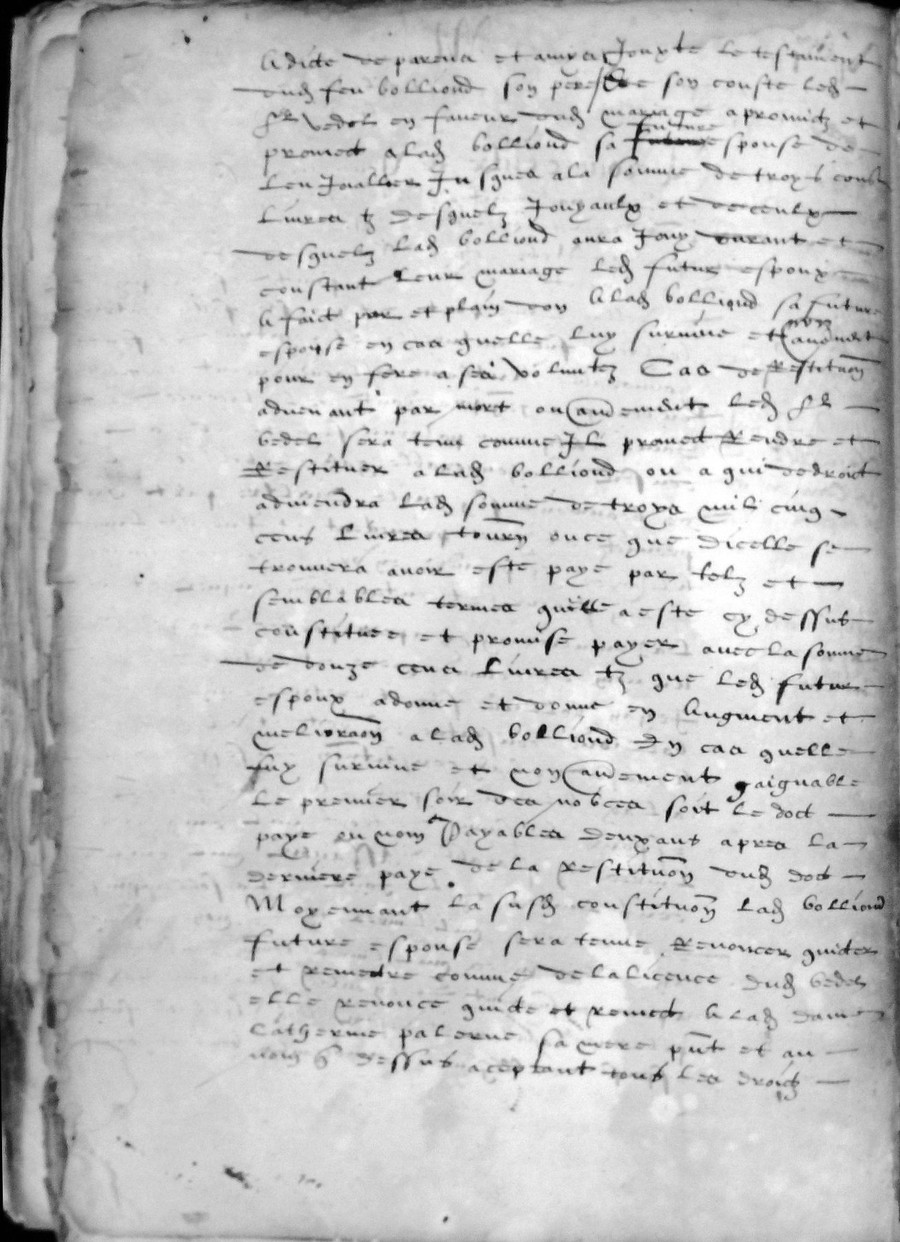 a dicte de parens et amys Jouxte le testament
dud feu bolliond son pere / Et de son couste led
sr vedel en faveur dud mariage a promictz et
promect a lad bolliond sa future espouse de
len Joaller Jusques a la somme de troys cens
livres tz desquelz Jouyaulx et de ceulx
desquelz lad bolliond aura Jouy durant et
constant leur mariage led futur espoux
a faict pur et plain don a lad bolliond sa future
espouse en cas quelle luy survive et non aultrement
pour en fere a ses voluntez Cas de Restituon
advenant par mort ou aultrement led sr
vedel sera tenu comme Jl promect Rendre et
Restituer a lad bolliond ou a qui de droict
adviendra lad somme de troys mil cinq
cens livres tourn ou ce que dicelle se
trouvera avoir este paye par telz et
semblables termes quelle a este cy dessus
constituee et promise payer avec la somme
de douze cens livres tz que led future
espoux a donne et donne en Augment et
melioraon a lad bolliond En cas quelle
luy survive et non aultrement gaignable
le premier soir des nobces soit le doct
paye ou non Payables deux ans apres la
derniere paye de la restituon dud doct
Moyennant la susd constituon lad bolliond
future espouse sera tenue Renoncer quicter
et remectre comme de la licence dud vedel
elle renonce quicte et remect a lad dame
Catherine palerne sa mere pnt et au
nom q dessus aceptant tous les droictz